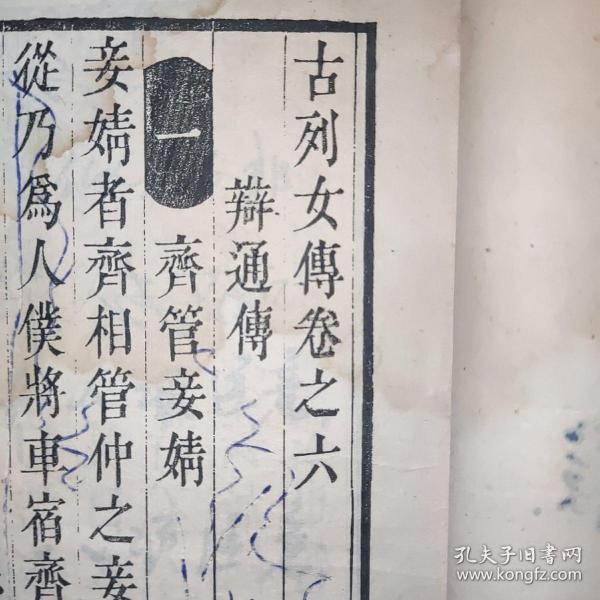 古列女傳卷之六
辯通傳
一
齊管妾婧
妾婧者齊相管仲之妾
從乃爲人僕將車宿齊
孔夫子旧书网
www.kongfz.com